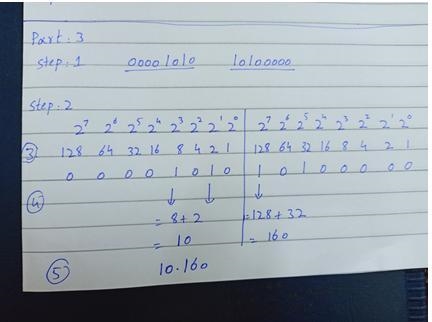 Part: 3
Step: 1 00001010 10100000
Step: 2
2⁷ 2⁶ 2⁵ 2⁴ 2³ 2² 2¹ 2⁰ 2⁷ 2⁶ 2⁵ 2⁴ 2³ 2² 2¹ 2⁰
③ 128 64 32 16 8 4 2 1 128 64 32 16 8 4 2 1
0 0 0 0 1 0 1 0 1 0 1 0 0 0 0 0
④ ↓ ↓ ↓
= 8+2 =128+32
= 10 = 160
⑤ 10.160